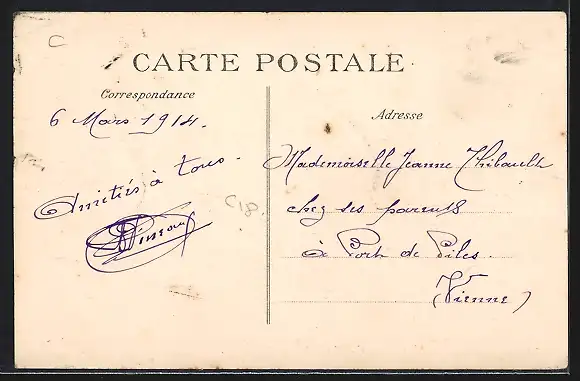 C
CARTE POSTALE
Correspondance
6 Mars 1914.
Amitiés à tous.
C18.
Adresse
Mademoiselle Jeanne Thibault
chez ses parents
à Port de Piles.
(Vienne)